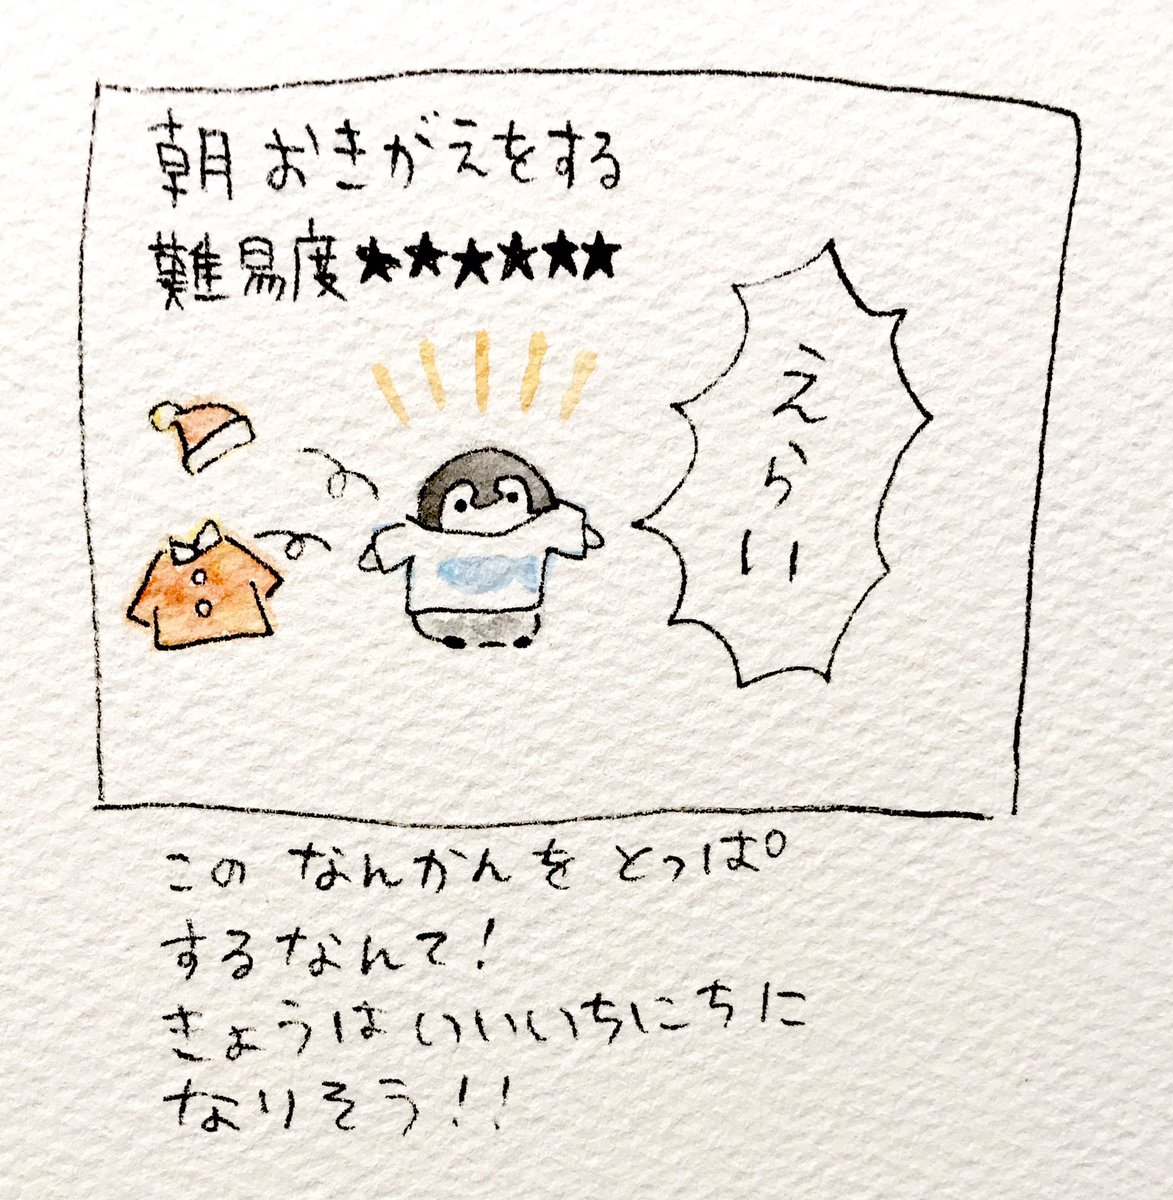 朝おきがえをする
難易度★★★★★★
えらい
この なんかんを とっぱ
するなんて!
きょうはいいいちにちに
なりそう!!